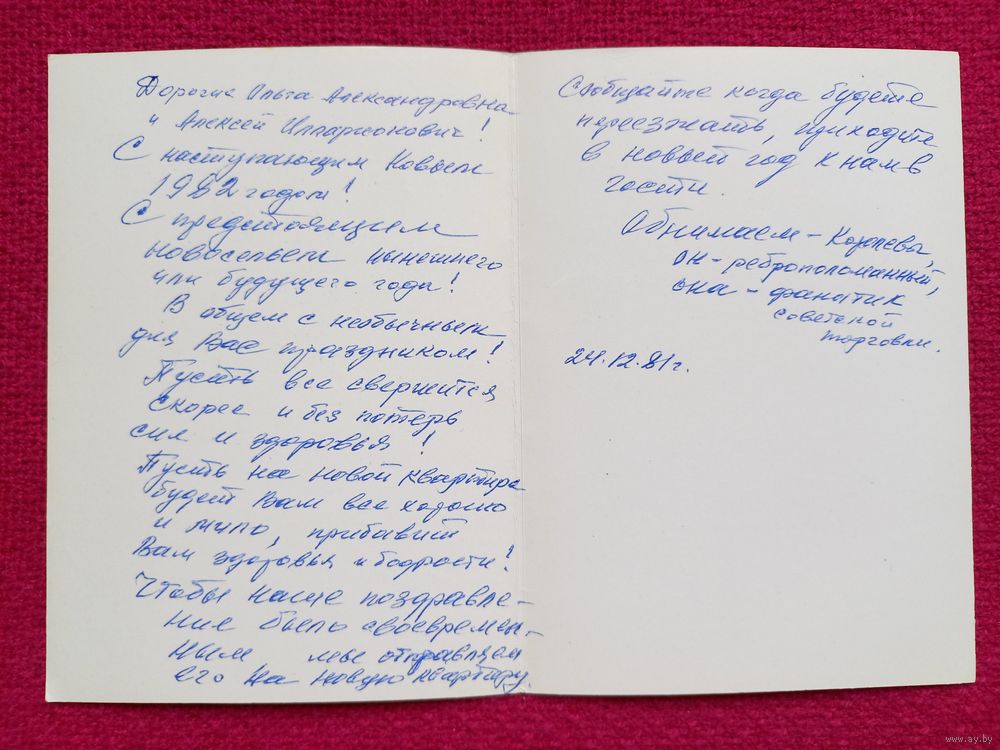 Дорогие Ольга Александровна
и Алексей Илларионович!
С наступающим Новым
1982 годом!
С предстоящим
новосельем нынешнего
или будущего года!
В общем с необычным
для Вас праздником!
Пусть все свершится
скорее и без потерь
сил и здоровья!
Пусть на новой квартире
будет Вам все хорошо
и мило, прибавит
Вам здоровья и бодрости!
Чтобы наше поздравле-
ние было своевремен-
ным мы отправляем
его на новую квартиру.
Сообщайте когда будете
переезжать, приходите
в новый год к нам в
гости.
Обнимаем - Королевы,
он - реброполоманный,
она - фанатик
советской
торговли.
24.12.81г.
www.ay.by